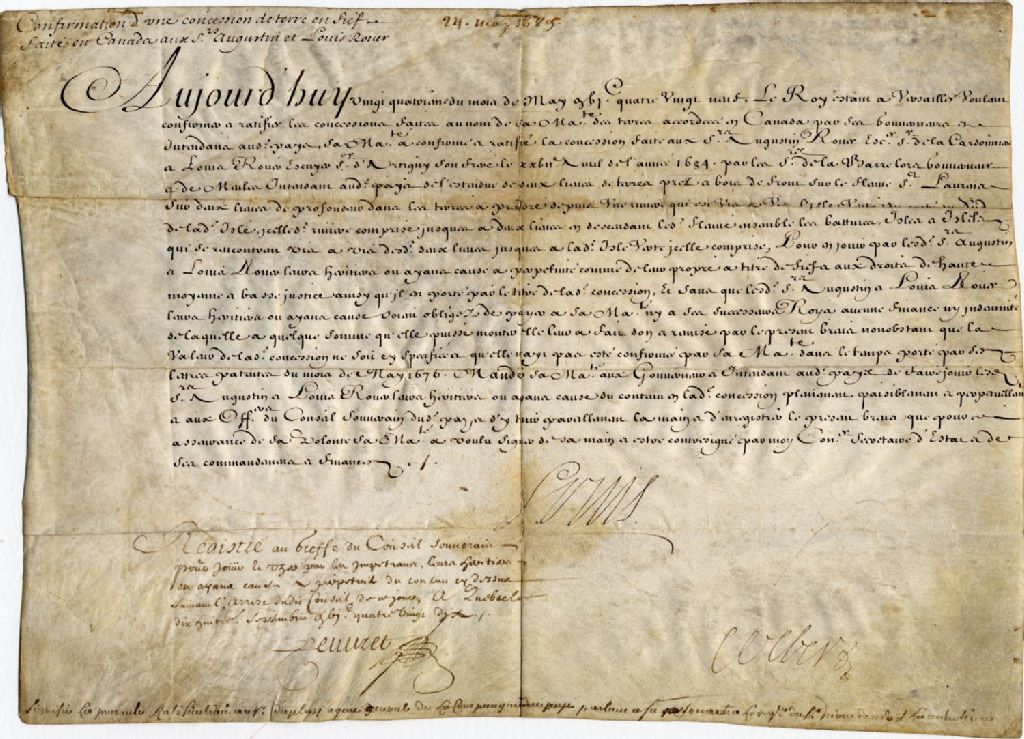 Confirmation d'vne concession de terre en fief
faite en Canada aux Srs Augustin et Louis Roüer
24. may 1689
Aujourd'huy vingt quatriesme du mois de May gbjc quatre vingt neuf, Le Roy estant a Versailles Voulant
confirmer et ratifier les concessions faites au nom de sa Mate des terres accordées en Canada par ses Gouverneurs et
Intendans audt pays, sa Mate a confirmé et ratifié la concession faite aux Srs Augustin Rouer Escr Sr de la Cardonniere
et Louis Roüer Escuyer Sr d'Artigny son frere le Avril de l'année 1684. par les Srs de la Barre lors Gouverneur
et de Meules Intendant audt pays de l'estendue de deux lieues de terres prez et bois de front sur le fleuve St Laurens
sur deux lieues de profondeur dans les terres a prendre depuis Vne riviere qui est Vis a Vis l'Isle Verte
de ladt Isle jcelle riviere comprise jusques a deux lieues en descendant led fleuve ensemble les battures Isles et Islets
qui se rencontreront vis a vis desd deux lieues jusques a ladt Isle Verte jcelle comprise, Pour en jouir par lesd Srs Augustin
et Louis Roüer leurs heritiers ou ayans cause a perpetuité comme de leur propre a titre de fief et aux droits de haute
moyenne et basse justice ainsy qu'il est porté par le titre de ladt concession, Et sans que lesd Srs Augustin et Louis Rouer
leurs heritiers ou ayans cause soient obligez de payer a sa Mate ny a ses successeurs Roys aucune finance ny indamnité
de laquelle a quelque somme qu'elle puisse monter elle leur a fait don et remise par le present brevet nonobstant que la
Valeur de ladt concession ne soit cy specifiée et qu'elle n'ayt pas esté confirmée par sa Mate dans le temps porté par ses
lettres patentes du mois de May 1676. Mande sa Mate aux Gouverneur et Intendant audt pays de faire jouir lesd
Srs Augustin et Louis Roüer leurs heritiers ou ayans cause du contenu en ladt concession plainement paisiblement et perpetuellement
et aux Offers du Conseil Souverain dudt pays et d'y tenir pareillement la main et d'enregistrer le present brevet que pour
asseurance de sa volonté sa Mate a voulu signer de sa main et estre contresigné par moy Conser Secretaire d'Estat et de
ses commandemens et finances
Louis
Registré au greffe du Conseil souverain
pour joüir et vzer par les jmpetrans, leurs heritiers
ou ayans cause a perpetuité du contenu cy dessus
suivant l'arrest dudit Conseil de ce jour A Quebecq le
septembre gbjc quatre vingt dix
Peuvret
Colbert